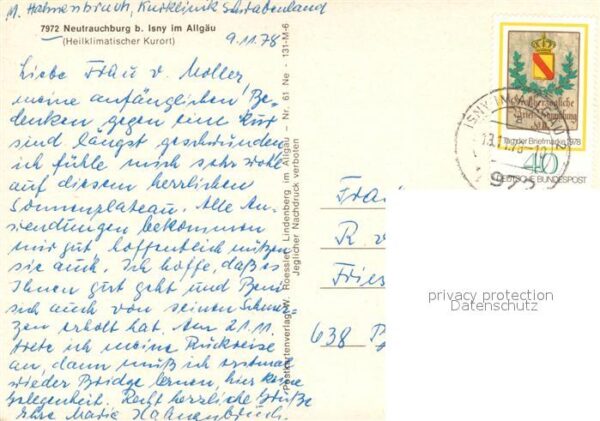 M. Hahnenbruch, Kurklinik Schwabenland
7972 Neutrauchburg b. Isny im Allgäu
(Heilklimatischer Kurort)
9.11.78
Liebe Frau v. Moller,
meine anfänglichen Be-
denken gegen eine Kur
sind längst geschwunden
ich fühle mich sehr wohl
auf diesem herrlichen
Sonnenplateau. Alle An-
wendungen bekommen
mir gut, hoffentlich nützen
sie auch. Ich hoffe, daß es
Ihnen gut geht und
sich auch von seinen Schmer-
zen erholt hat. Am 21.11.
trete ich meine Rückreise
an, dann muß ich erstmal
wieder Bridge lernen, hier keine
Gelegenheit. Recht herzliche Grüße
Ihre Marie Hahnenbruch.
Postkartenverlag W. Roessler, Lindenberg im Allgäu - Nr. 61 Ne - 131-M-6
Jeglicher Nachdruck verboten
Großherzogliche
Tag der Briefmarke 1978
40
DEUTSCHE BUNDESPOST
ISNY IM
13.11.78
972
R. v
Fries
638
privacy protection
Datenschutz